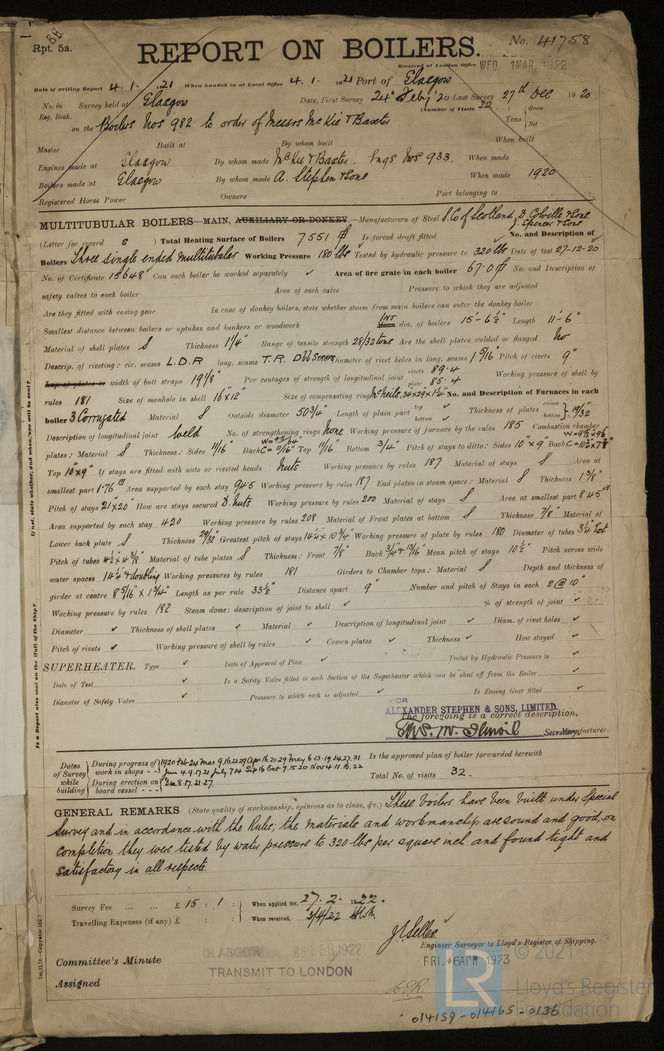 Rpt. 5a.
REPORT ON BOILERS.
No. 41758
Received at London Office WED 1 MAR. 1922
Date of writing Report 4. 1. 21 When handed in at Local Office 4. 1. 1921 Port of Glasgow
No. in Survey held at Glasgow Date, First Survey 24th Feby '20 Last Survey 27th Dec 1920
Reg. Book. (Number of Visits 32
on the Boilers Nos 982 to order of Messrs McKie & Baxter Tons Gross Net
Master Built at By whom built When built
Engines made at Glasgow By whom made McKie & Baxter Engs Nos 933. When made
Boilers made at Glasgow By whom made A. Stephen & Sons When made 1920
Registered Horse Power Owners Port belonging to
MULTITUBULAR BOILERS—MAIN, AUXILIARY OR DONKEY.—Manufacturers of Steel S. Co of Scotland, D. Colville & Sons J. Spencer & Sons
(Letter for record S ) Total Heating Surface of Boilers 7551 ft Is forced draft fitted No. and Description of
Boilers Three single ended multitubular Working Pressure 180 lbs Tested by hydraulic pressure to 320 lbs Date of test 27-12-20
No. of Certificate 15648 Can each boiler be worked separately ✓ Area of fire grate in each boiler 67.0 ft No. and Description of
safety valves to each boiler Area of each valve Pressure to which they are adjusted
Are they fitted with easing gear In case of donkey boilers, state whether steam from main boilers can enter the donkey boiler
Smallest distance between boilers or uptakes and bunkers or woodwork INT dia. of boilers 15'-6½" Length 11'-6"
Material of shell plates S Thickness 1¼" Range of tensile strength 28/32 tons Are the shell plates welded or flanged No
Descrip. of riveting: cir. seams L.D.R long. seams T.R. Dbl Straps Diameter of rivet holes in long. seams 1 5/16 Pitch of rivets 9"
Lap of plates or width of butt straps 19⅛" Per centages of strength of longitudinal joint rivets 89.4 plate 85.4 Working pressure of shell by
rules 181 Size of manhole in shell 16"x12" Size of compensating ring McNeils, No. and Description of Furnaces in each
boiler 3 Corrugated Material S Outside diameter 50¾" Length of plain part top bottom Thickness of plates crown bottom 19/32"
Description of longitudinal joint Weld No. of strengthening rings none Working pressure of furnace by the rules 185 Combustion chamber
plates: Material S Thickness: Sides 11/16" Back 11/16" Top 11/16" Bottom ¾" Pitch of stays to ditto: Sides 10"x9" Back
Top 10"x9" If stays are fitted with nuts or riveted heads Nuts Working pressure by rules 187 Material of stays S Area at
smallest part 1.76 Area supported by each stay 94.5 Working pressure by rules 187 End plates in steam space: Material S Thickness 1⅜"
Pitch of stays 21"x20" How are stays secured D. nuts Working pressure by rules 200 Material of stays S Area at smallest part 8.45
Area supported by each stay 420 Working pressure by rules 208 Material of Front plates at bottom S Thickness ⅞" Material of
Lower back plate S Thickness 29/32 Greatest pitch of stays 14¼ x 10¾" Working pressure of plate by rules 180 Diameter of tubes 3¼"
Pitch of tubes 4½"x4⅜" Material of tube plates S Thickness: Front ⅞" Back ¾" & 13/16" Mean pitch of stays 10½" Pitch across wide
water spaces 14¼" & doubling Working pressures by rules 181 Girders to Chamber tops: Material S Depth and thickness of
girder at centre 8 5/16" x 1¾" Length as per rule 33½" Distance apart 9" Number and pitch of Stays in each 2 @ 10"
Working pressure by rules 182 Steam dome: description of joint to shell ✓ % of strength of joint ✓
Diameter ✓ Thickness of shell plates ✓ Material ✓ Description of longitudinal joint ✓ Diam. of rivet holes ✓
Pitch of rivets ✓ Working pressure of shell by rules ✓ Crown plates ✓ Thickness ✓ How stayed ✓
SUPERHEATER. Type ✓ Date of Approval of Plan ✓ Tested by Hydraulic Pressure to ✓
Date of Test ✓ Is a Safety Valve fitted to each Section of the Superheater which can be shut off from the Boiler ✓
Diameter of Safety Valve ✓ Pressure to which each is adjusted ✓ Is Easing Gear fitted ✓
FOR
ALEXANDER STEPHEN & SONS, LIMITED.
The foregoing is a correct description,
Secretary Manufacturer.
Dates of Survey while building During progress of work in shops - - 1920 Feb. 24 Mar 9.16.22.29 Apr 16.20.29 May 6.13.19.24.27.31 Is the approved plan of boiler forwarded herewith
Jun 4.9.17.21 July 7.14 Sep 16 Oct 7.15.20 Nov 4.11.16.22
During erection on board vessel - - - Dec 8.17.21.27. Total No. of visits 32.
GENERAL REMARKS (State quality of workmanship, opinions as to class, &c.) These boilers have been built under Special
Survey and in accordance with the Rules; the materials and workmanship are sound and good, on
completion they were tested by water pressure to 320 lbs per square inch and found tight and
satisfactory in all respects.
Survey Fee ... ... £ 15 : 1 : When applied for, 27. 2. 1922.
Travelling Expenses (if any) £ : : When received, 3/4/22
Engineer Surveyor to Lloyd's Register of Shipping.
Committee's Minute GLASGOW 28 FEB 1922 FRI. 6 APR 1923
TRANSMIT TO LONDON
Assigned
© 2021
Lloyd's Register
Foundation
LR
014159-014165-0136
If not, state whether, and when, one will be sent?
Is a Report also sent on the Hull of the Ship?